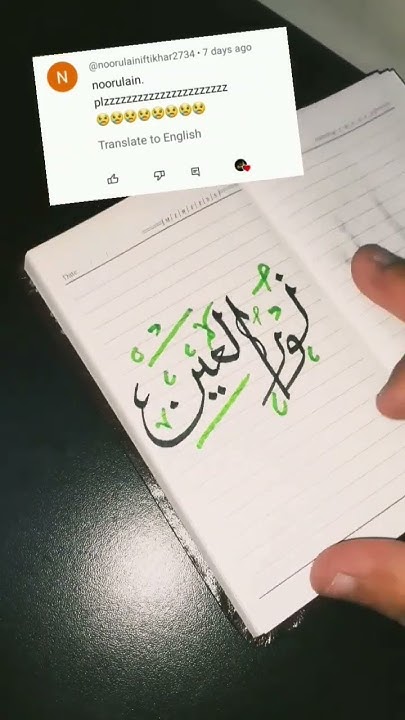 @noorulainiftikhar2734 • 7 days ago
noorulain.
plzzzzzzzzzzzzzzzzzzzzzzz
😢😢😢😢😢😢😢😢
Translate to English
N
Date:
نور العين